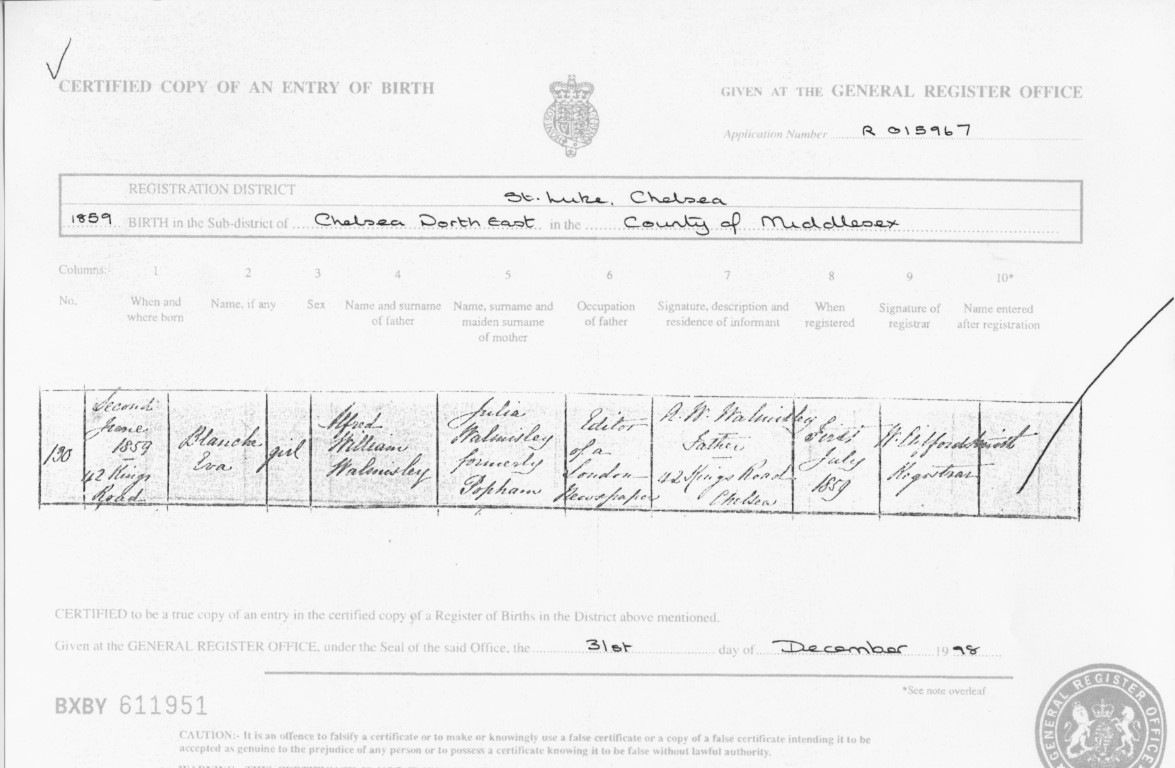 CERTIFIED COPY OF AN ENTRY OF BIRTH
GIVEN AT THE GENERAL REGISTER OFFICE
Application Number R 015967
REGISTRATION DISTRICT St. Luke, Chelsea
1859 BIRTH in the Sub-district of Chelsea North East in the County of Middlesex
Columns:- 1 2 3 4 5 6 7 8 9 10*
No. When and where born Name, if any Sex Name and surname of father Name, surname and maiden surname of mother Occupation of father Signature, description and residence of informant When registered Signature of registrar Name entered after registration
130
Second
June
1859
42 Kings
Road
Blanche
Eva
girl
Alfred
William
Walmisley
Julia
Walmisley
formerly
Popham
Editor
of a
London
Newspaper
A. W. Walmisley
Father
42 Kings Road
Chelsea
First
July
1859
Registrar
CERTIFIED to be a true copy of an entry in the certified copy of a Register of Births in the District above mentioned.
Given at the GENERAL REGISTER OFFICE, under the Seal of the said Office, the 31st day of December 1998
*See note overleaf
BXBY 611951
CAUTION:- It is an offence to falsify a certificate or to make or knowingly use a false certificate or a copy of a false certificate intending it to be
accepted as genuine to the prejudice of any person or to possess a certificate knowing it to be false without lawful authority.
GENERAL REGISTER OFFICE